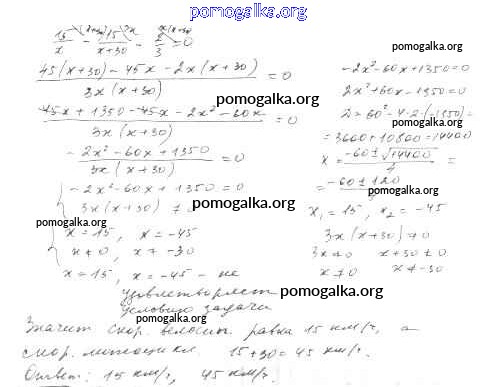 pomogalka.org
15/x - 15/(x+30) - 2/3 = 0
(45(x+30) - 45x - 2x(x+30)) / (3x(x+30)) = 0
pomogalka.org
(45x + 1350 - 45x - 2x² - 60x) / (3x(x+30)) = 0
pomogalka.org
(-2x² - 60x + 1350) / (3x(x+30)) = 0
-2x² - 60x + 1350 = 0
3x(x+30) ≠ 0
pomogalka.org
pomogalka.org
x = 15, x = -45
x ≠ 0, x ≠ -30
x = 15, x = -45 - не
удовлетворяет
условию задачи
pomogalka.org
-2x² - 60x + 1350 = 0
2x² + 60x - 1350 = 0
D = 60² - 4·2·(-1350) =
pomogalka.org
= 3600 + 10800 = 14400
x = (-60 ± √14400) / 4 =
= (-60 ± 120) / 4
pomogalka.org
x₁ = 15, x₂ = -45
3x(x+30) ≠ 0
pomogalka.org
3x ≠ 0 x+30 ≠ 0
x ≠ 0 x ≠ -30
pomogalka.org
Значит скор. велосип. равна 15 км/ч, а
скор. мотоцикл. 15+30 = 45 км/ч.
Ответ: 15 км/ч, 45 км/ч.